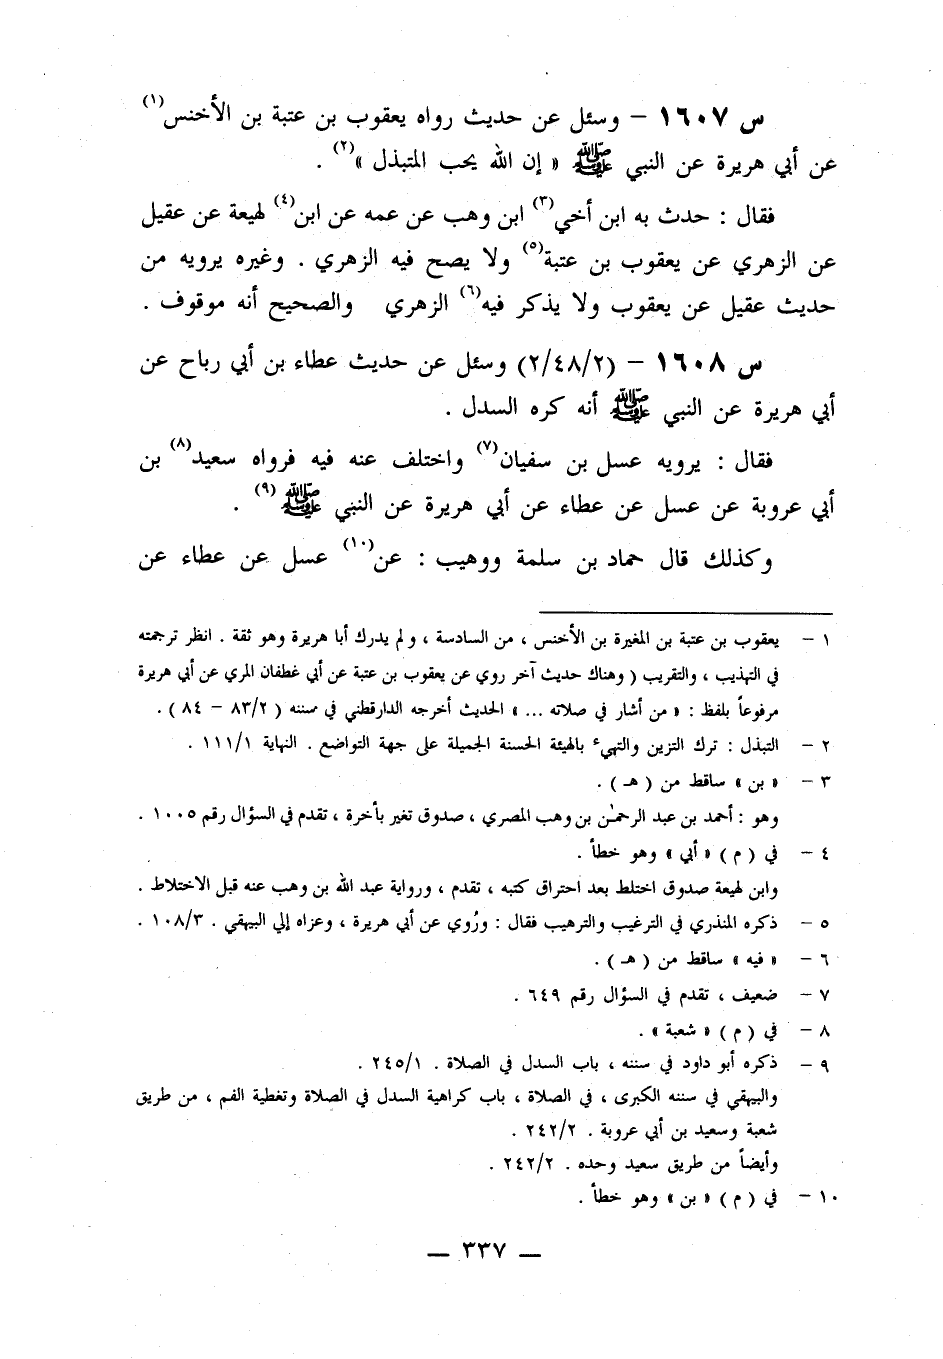 س ١٦٠٧ – وسئل عن حديث رواه يعقوب بن عتبة بن الأخنس(١)
عن أبي هريرة عن النبي ﷺ « إن الله يحب المتبذل »(٢) .
فقال : حدث به ابن أخي(٣) ابن وهب عن عمه عن ابن(٤) لهيعة عن عقيل
عن الزهري عن يعقوب بن عتبة(٥) ولا يصح فيه الزهري . وغيره يرويه من
حديث عقيل عن يعقوب ولا يذكر فيه(٦) الزهري والصحيح أنه موقوف .
س ١٦٠٨ – (٢/٤٨/٢) وسئل عن حديث عطاء بن أبي رباح عن
أبي هريرة عن النبي ﷺ أنه كره السدل .
فقال : يرويه عسل بن سفيان(٧) واختلف عنه فيه فرواه سعيد(٨) بن
أبي عروبة عن عسل عن عطاء عن أبي هريرة عن النبي ﷺ(٩) .
وكذلك قال حماد بن سلمة ووهيب : عن(١٠) عسل عن عطاء عن
١ – يعقوب بن عتبة بن المغيرة بن الأخنس ، من السادسة ، ولم يدرك أبا هريرة وهو ثقة . انظر ترجمته
في التهذيب ، والتقريب ( وهناك حديث آخر روي عن يعقوب بن عتبة عن أبي غطفان المري عن أبي هريرة
مرفوعاً بلفظ : « من أشار في صلاته ... » الحديث أخرجه الدارقطني في سننه ( ٨٣/٢ – ٨٤ ) .
٢ – التبذل : ترك التزين والتهيء بالهيئة الحسنة الجميلة على جهة التواضع . النهاية ١١١/١ .
٣ – « بن » ساقط من ( هـ ) .
وهو : أحمد بن عبد الرحمٰن بن وهب المصري ، صدوق تغير بأخرة ، تقدم في السؤال رقم ١٠٠٥ .
٤ – في ( م ) « أبي » وهو خطأ .
وابن لهيعة صدوق اختلط بعد احتراق كتبه ، تقدم ، ورواية عبد الله بن وهب عنه قبل الاختلاط .
٥ – ذكره المنذري في الترغيب والترهيب فقال : ورُوي عن أبي هريرة ، وعزاه إلي البيهقي . ١٠٨/٣ .
٦ – « فيه » ساقط من ( هـ ) .
٧ – ضعيف ، تقدم في السؤال رقم ٦٤٩ .
٨ – في ( م ) « شعبة » .
٩ – ذكره أبو داود في سننه ، باب السدل في الصلاة . ٢٤٥/١ .
والبيهقي في سننه الكبرى ، في الصلاة ، باب كراهية السدل في الصلاة وتغطية الفم ، من طريق
شعبة وسعيد بن أبي عروبة . ٢٤٢/٢ .
وأيضاً من طريق سعيد وحده . ٢٤٢/٢ .
١٠ – في ( م ) « بن » وهو خطأ .
— ٣٣٧ —